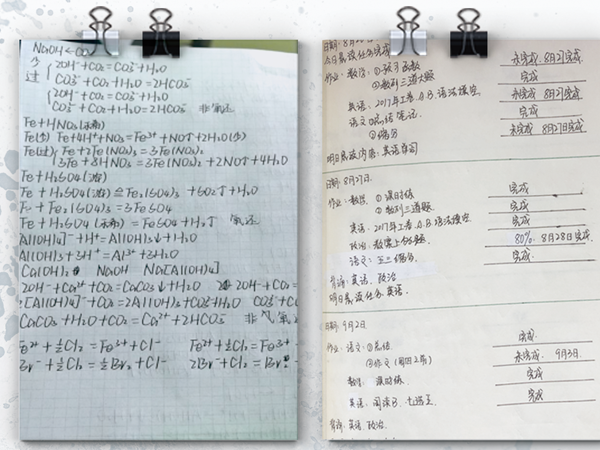 NaOH ← CO₂
少 { 2OH⁻ + CO₂ = CO₃²⁻ + H₂O
过 { CO₃²⁻ + CO₂ + H₂O = 2HCO₃⁻
2OH⁻ + CO₂ = CO₃²⁻ + H₂O
CO₃²⁻ + CO₂ + H₂O = 2HCO₃⁻ 非氧还
Fe + HNO₃(稀)
Fe(少) Fe + 4H⁺ + NO₃⁻ = Fe³⁺ + NO↑ + 2H₂O(少)
Fe(过) Fe + 2Fe(NO₃)₃ = 3Fe(NO₃)₂
3Fe + 8HNO₃ = 3Fe(NO₃)₂ + 2NO↑ + 4H₂O
Fe + H₂SO₄(浓)
Fe + H₂SO₄(浓) Fe₂(SO₄)₃ + SO₂↑ + H₂O
Fe + Fe₂(SO₄)₃ = 3FeSO₄
Fe + H₂SO₄(稀) = FeSO₄ + H₂↑ 氧还
Al(OH)₄]⁻ + H⁺ = Al(OH)₃↓ + H₂O
Al(OH)₃ + 3H⁺ = Al³⁺ + 3H₂O
Ca(OH)₂ NaOH Na[Al(OH)₄]
2OH⁻ + Ca²⁺ + CO₂ = CaCO₃↓ + H₂O 2OH⁻ + CO₂ =
2[Al(OH)₄]⁻ + CO₂ = 2Al(OH)₃↓ + CO₃²⁻ + H₂O CO₃²⁻ + C
CaCO₃ + H₂O + CO₂ = Ca²⁺ + 2HCO₃⁻ 非氧
Fe²⁺ + ½Cl₂ = Fe³⁺ + Cl⁻ Fe²⁺ + ½Cl₂ = Fe³⁺
Br⁻ + ½Cl₂ = ½Br₂ + Cl⁻ 2Br⁻ + Cl₂ = Br₂
日期: 8月2
今日晨读任务完成 未完成 8月27完成
作业: 数学: ① 函数 完成
②数列三道大题 未完成 8月27完成
英语: 2017年上卷 A.B.语法填空 完成
语文: 笔记 未完成 8月27日完成
②
明日晨读内容: 英语单词
日期: 8月27日.
作业: 数学: ① 课时练 完成
② 数列三道题 完成
英语: 2017年上卷 A.B.语法填空 完成
政治: 80% 8月28日完成
语文: 五三 完成.
背诵: 英语、政治
明日晨读任务: 英语.
日期: 9月2日
作业: 语文: ①总结 完成.
②作文 未完成. 9月3日.
数学: 课时练 完成
英语: 阅读B. 七选五 完成
背诵: 英语、政治.